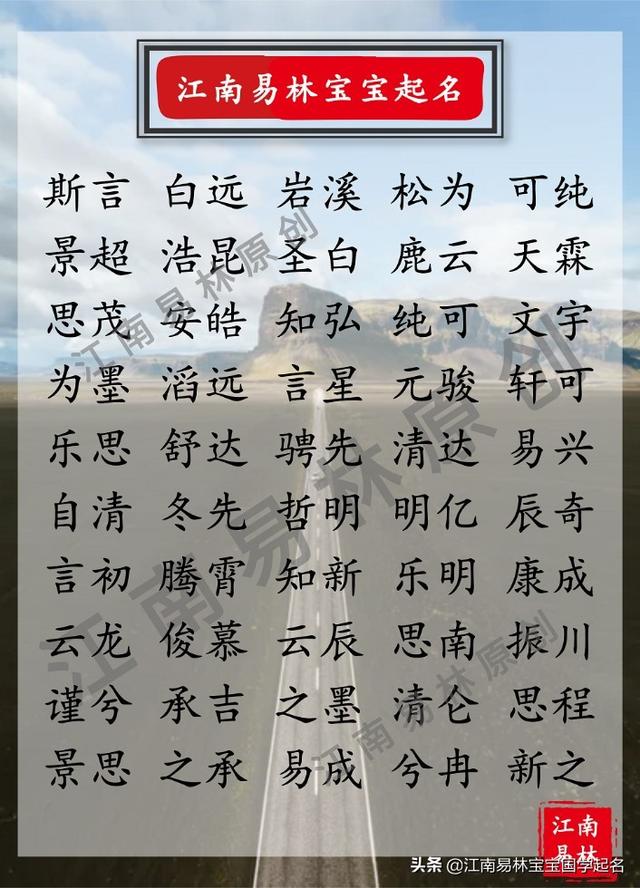 江南易林宝宝起名
斯言 白远 岩溪 松为 可纯
景超 浩昆 圣白 鹿云 天霖
思茂 安皓 知弘 纯可 文宇
为墨 滔远 言星 元骏 轩可
乐思 舒达 骋先 清达 易兴
自清 冬先 哲明 明亿 辰奇
言初 腾霄 知新 乐明 康成
云龙 俊慕 云辰 思南 振川
谨兮 承吉 之墨 清仑 思程
景思 之承 易成 兮冉 新之
江南易林原创
江南易林原创
江南易林原创
江南
易林
头条 @江南易林宝宝国学起名